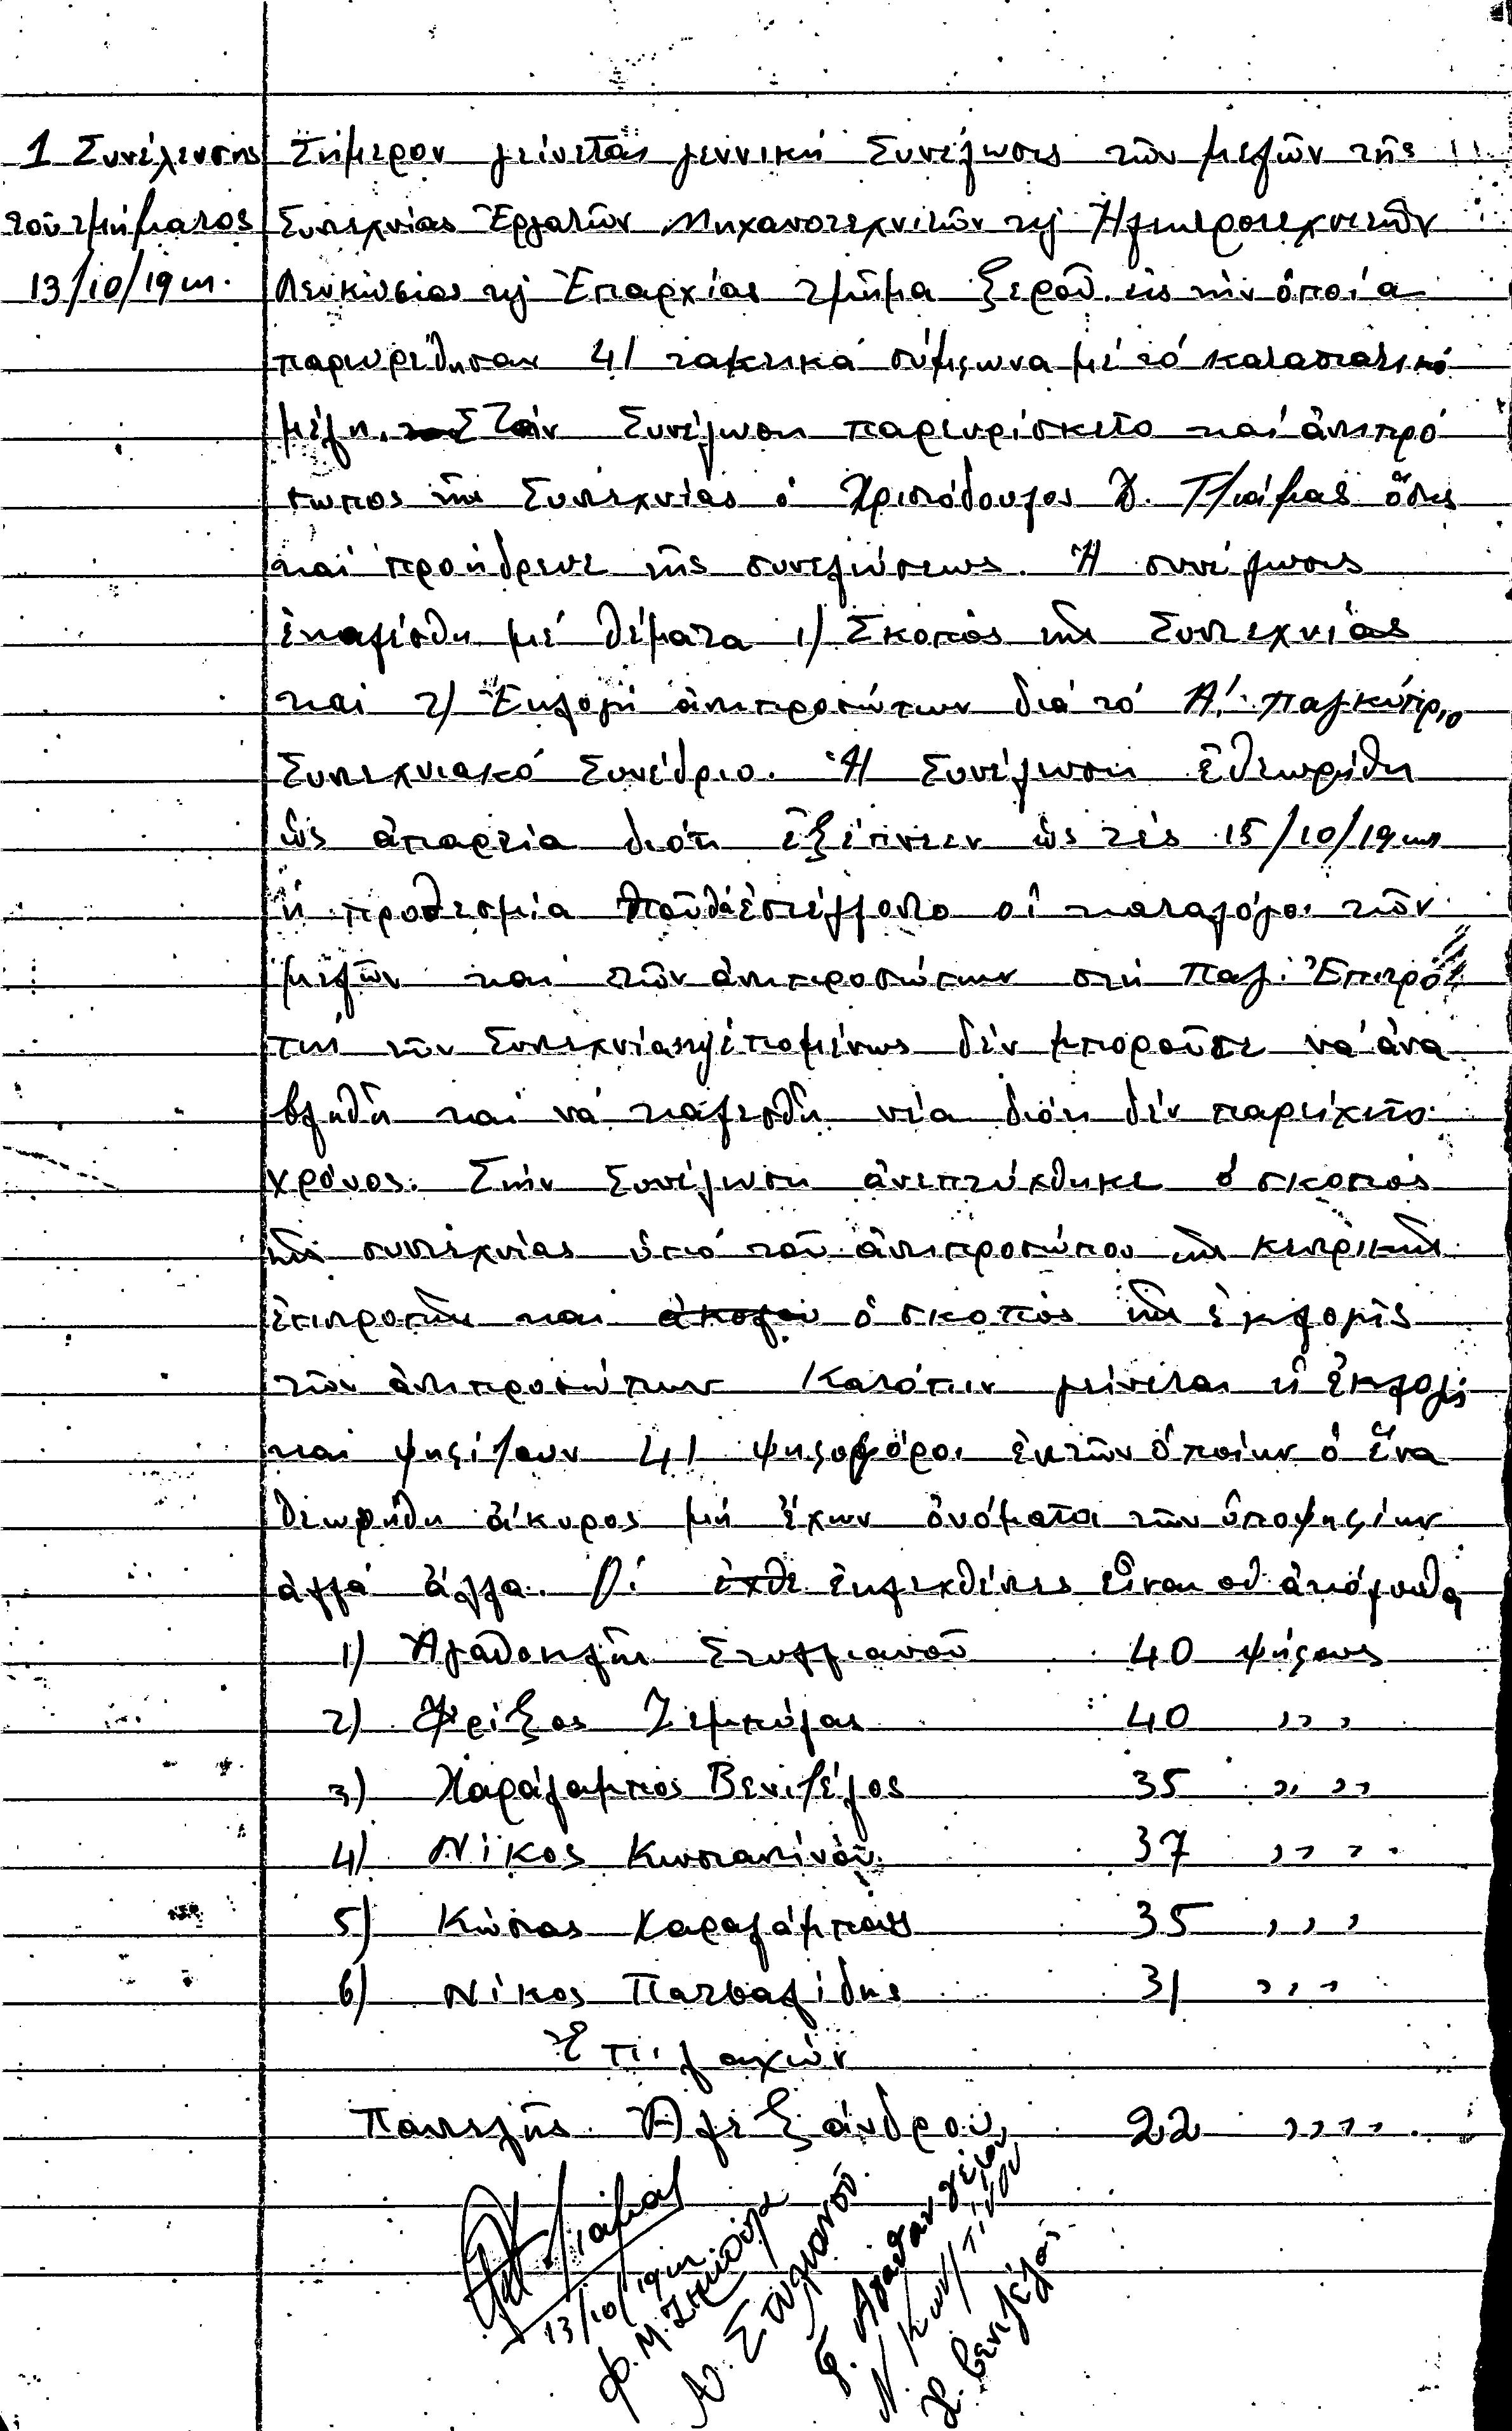 1 Συνέλευσης
τοῦ τμήματος
13/10/19
Σήμερον γείνεται γεννική Συνέλωσις τῶν μελῶν τῆς
Συντεχνίας Ἐργατῶν Μηχανοτεχνιτῶν καὶ Ἠλεκτροτεχνιτῶν
Λευκωσίας καὶ Ἐπαρχίας τμῆμα Ξεροῦ εἰς τὴν ὁποία
παρευρέθησαν 41 τακτικά σύμφωνα μέ τό καταστατικό
μέλη. Στήν Συνέλωση παρευρίσκετο καί ἀντιπρό
σωπος τῆς Συντεχνίας ὁ Χριστόδουλος Χ. Τζιάμας ὅστις
καί προήδρευε τῆς συνελώσεως. Ἡ συνέλωσις
ἐκαλέσθη μέ θέματα 1) Σκοπός τῆς Συντεχνίας
καί 2) Ἐκλογή ἀντιπροσώπων διά τό Α! Παγκύπριο
Συντεχνιακό Συνέδριο. Ἡ Συνέλωση ἐθεωρήθη
ὡς ἀπαρτία διότι ἐξέπνεεν ὡς τές 15/10/19
ἡ προθεσμία ποῦ θά ἐστέλλοντο οἱ καταλόγοι τῶν
μελῶν καί τῶν ἀντιπροσώπων στή Παγ. Ἐπιτρο
πή τῶν Συντεχνιῶν καὶ ἑπομένως δέν μποροῦσε νά ἀνα
βληθῆ καί νά καλεσθῆ νέα διότι δέν παρείχετο
χρόνος. Στήν Συνέλωση ἀνεπτύχθηκε ὁ σκοπός
τῆς συντεχνίας ὑπό τοῦ ἀντιπροσώπου τῆς κεντρικῆς
ἐπιτροπῆς καί ὁ σκοπός τῆς ἐκλογῆς
τῶν ἀντιπροσώπων Κατόπιν γείνεται ἡ ἐκλογή
καί ψηφίζουν 41 ψηφοφόροι ἐκ τῶν ὁποίων ὁ ἕνα
θεωρήθη ἄκυρος μή ἔχων ὀνόματα τῶν ὑποψηφίων
ἀλλά ἄλλα. Οἱ ἐκλεχθέντες εἶναι οἱ ἀκόλουθοι
1) Ἀγαθοκλῆς Στυλλιανοῦ 40 ψήφους
2) Φρίξος Ζεμπύλας 40 ,,,
3) Χαράλαμπος Βενιζέλος 35 ,,,,
4) Νίκος Κωσταντίνου 37 ,,,,
5) Κώστας Χαραλάμπους 35 ,,,
6) Νίκος Πατσαλίδης 31 ,,,
Ἐπιλαχών
Παντελῆς Ἀλεξάνδρου 22 ,,,,
Τζιάμας
13/10/19
Φ. Μ. Ζεμπύλα
Α. Στυλιανοῦ
Ν. Κων/τίνου
Χ. Βενιζέλος